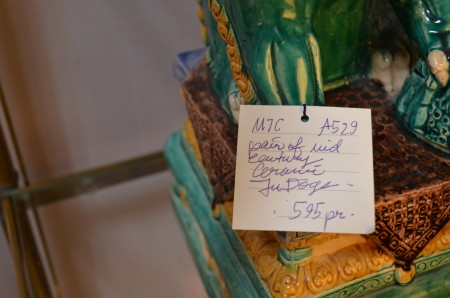 M7C A529
pair of mid
Century
Ceramic
Fu Dogs
595 pr.